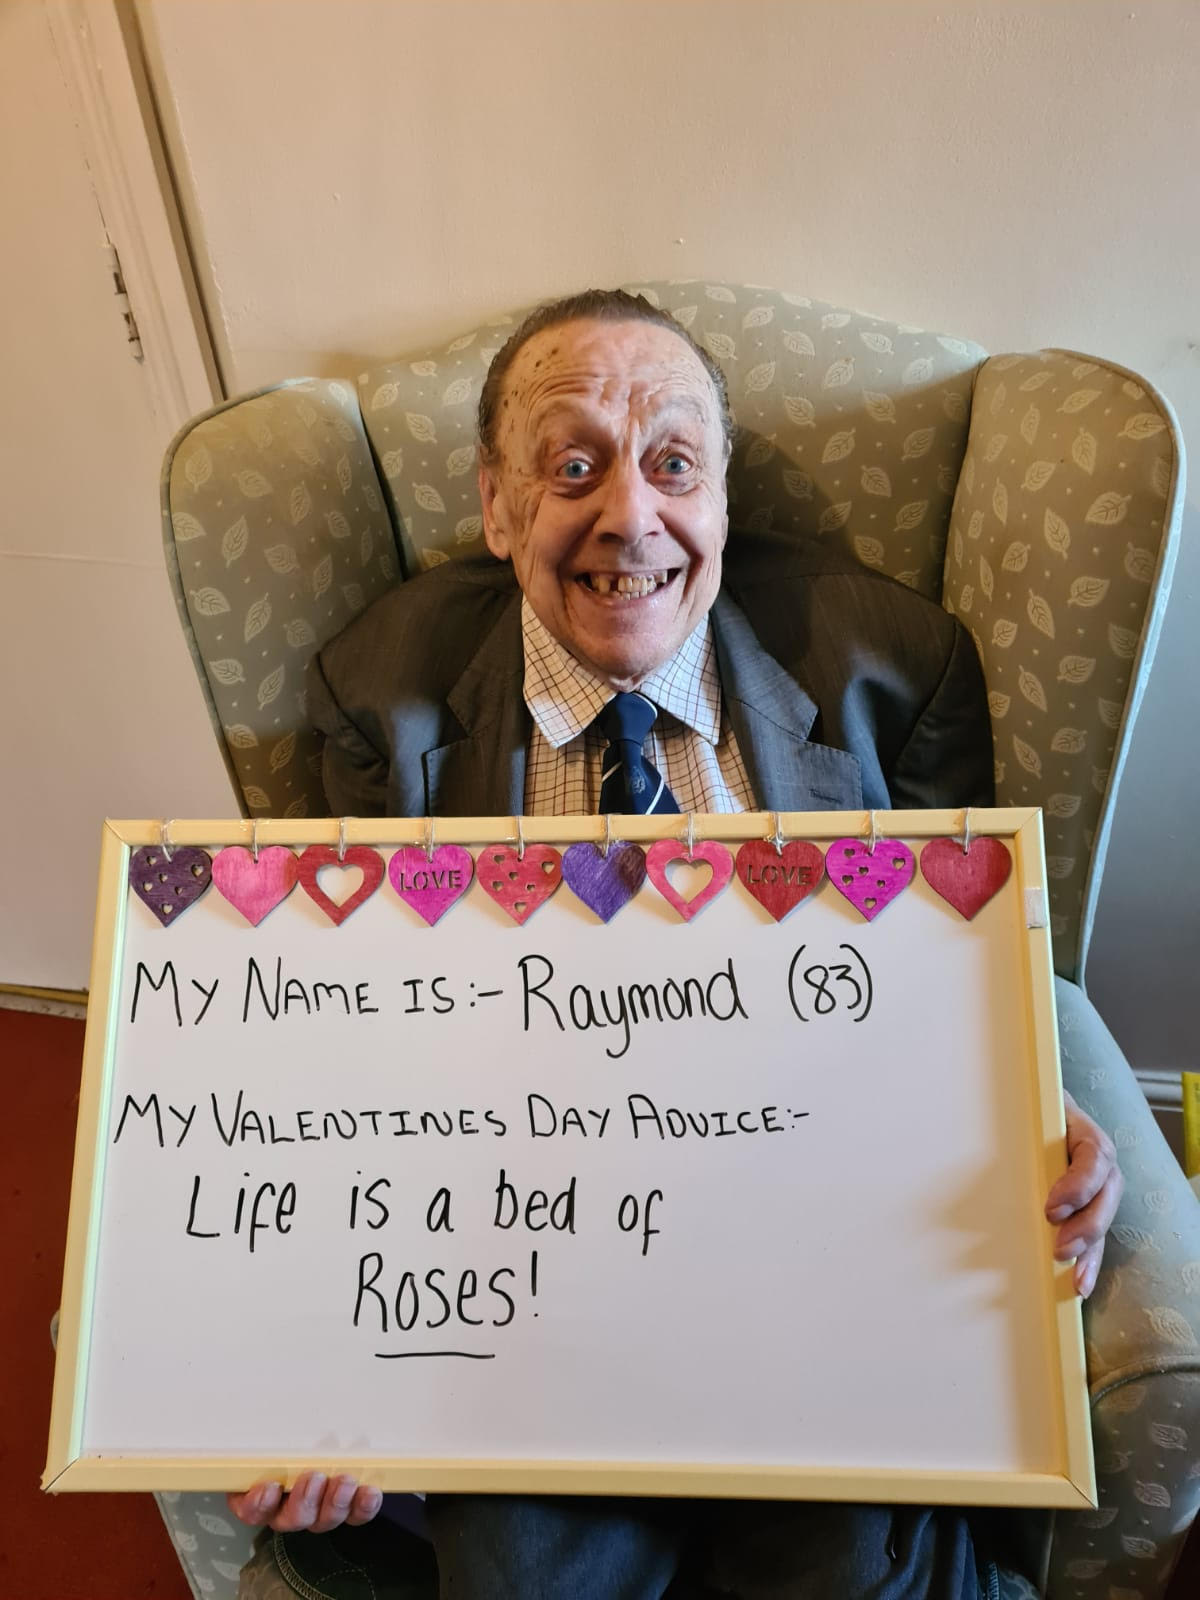 LOVE LOVE
MY NAME IS:- Raymond (83)
MY VALENTINES DAY ADVICE:-
Life is a bed of
Roses!